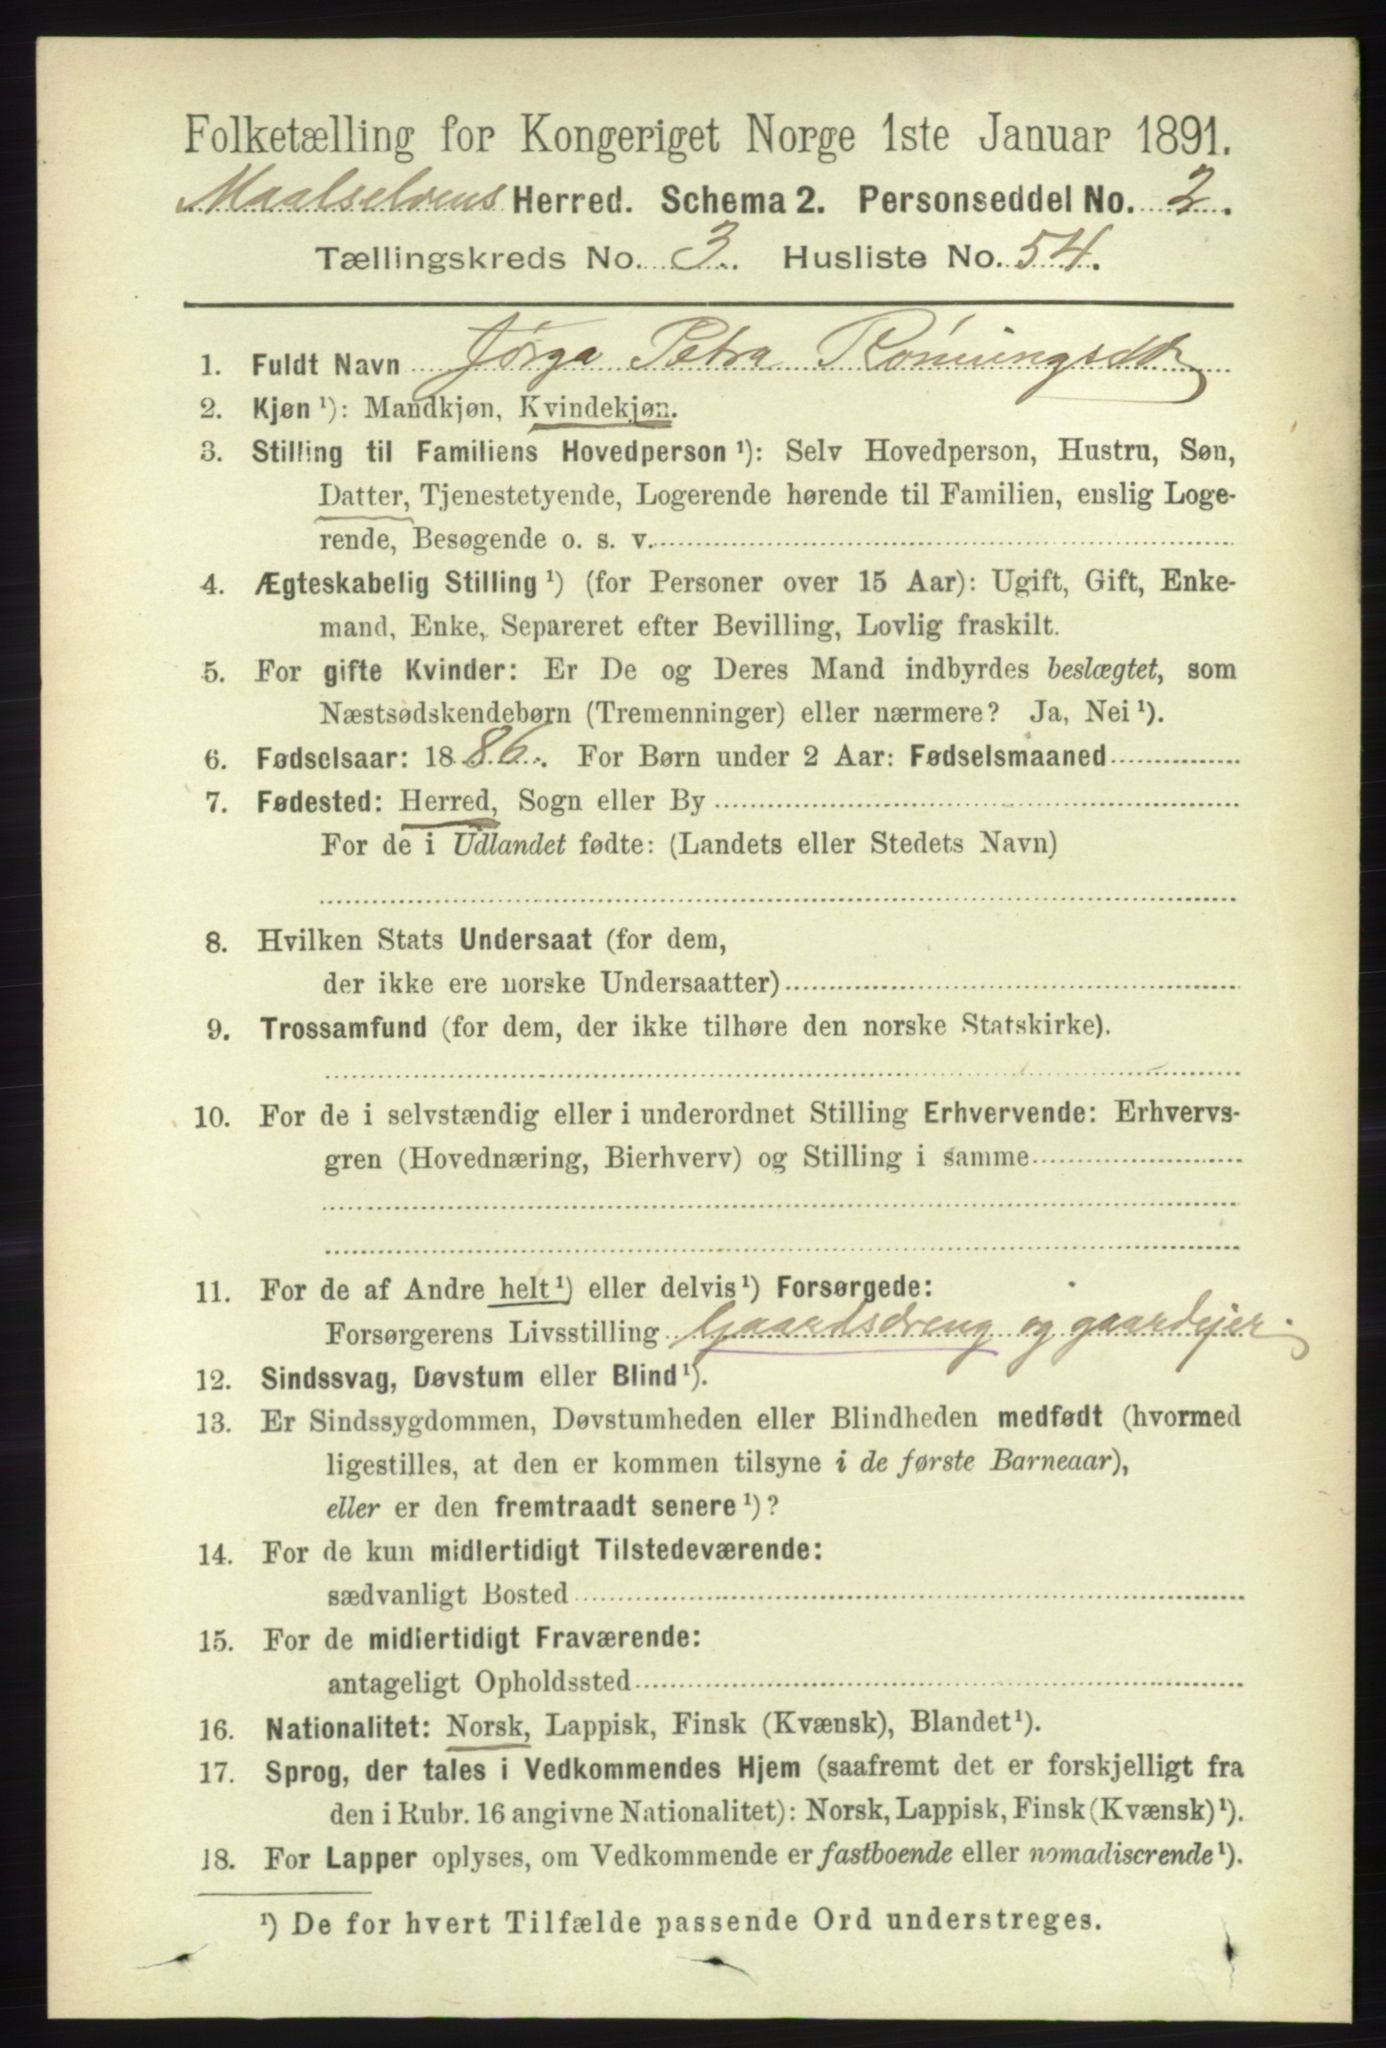 Folketælling for Kongeriget Norge 1ste Januar 1891.
Maalselvens Herred. Schema 2. Personseddel No. 2.
Tællingskreds No. 3. Husliste No. 54.
1. Fuldt Navn Jørga Petra
2. Kjøn ¹): Mandkjøn, Kvindekjøn.
3. Stilling til Familiens Hovedperson ¹): Selv Hovedperson, Hustru, Søn,
Datter, Tjenestetyende, Logerende hørende til Familien, enslig Loge-
rende, Besøgende o. s. v.
4. Ægteskabelig Stilling ¹) (for Personer over 15 Aar): Ugift, Gift, Enke-
mand, Enke, Separeret efter Bevilling, Lovlig fraskilt.
5. For gifte Kvinder: Er De og Deres Mand indbyrdes beslægtet, som
Næstsødskendebørn (Tremenninger) eller nærmere? Ja, Nei ¹).
6. Fødselsaar: 1886. For Børn under 2 Aar: Fødselsmaaned
7. Fødested: Herred, Sogn eller By
For de i Udlandet fødte: (Landets eller Stedets Navn)
8. Hvilken Stats Undersaat (for dem,
der ikke ere norske Undersaatter)
9. Trossamfund (for dem, der ikke tilhøre den norske Statskirke).
10. For de i selvstændig eller i underordnet Stilling Erhvervende: Erhvervs-
gren (Hovednæring, Bierhverv) og Stilling i samme
11. For de af Andre helt ¹) eller delvis ¹) Forsørgede:
Forsørgerens Livsstilling Gaardsdreng og gaardejer.
12. Sindssvag, Døvstum eller Blind ¹).
13. Er Sindssygdommen, Døvstumheden eller Blindheden medfødt (hvormed
ligestilles, at den er kommen tilsyne i de første Barneaar),
eller er den fremtraadt senere ¹)?
14. For de kun midlertidigt Tilstedeværende:
sædvanligt Bosted
15. For de midlertidigt Fraværende:
antageligt Opholdssted
16. Nationalitet: Norsk, Lappisk, Finsk (Kvænsk), Blandet ¹).
17. Sprog, der tales i Vedkommendes Hjem (saafremt det er forskjelligt fra
den i Rubr. 16 angivne Nationalitet): Norsk, Lappisk, Finsk (Kvænsk) ¹).
18. For Lapper oplyses, om Vedkommende er fastboende eller nomadiserende ¹).
¹) De for hvert Tilfælde passende Ord understreges.